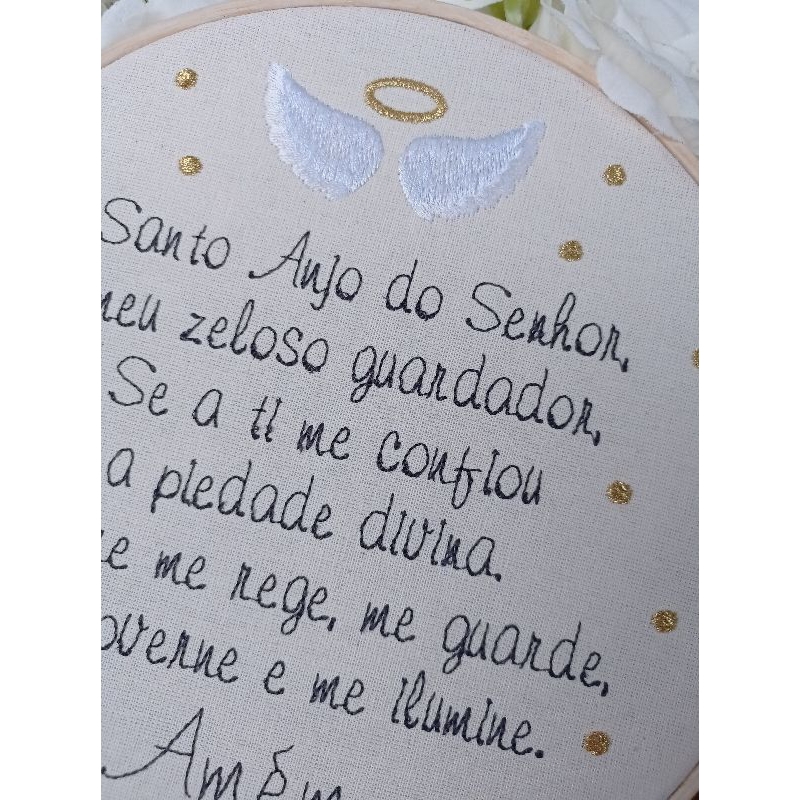 Santo Anjo do Senhor,
meu zeloso guardador,
Se a ti me confiou
a piedade divina.
me rege, me guarde,
governe e me ilumine.
Amém